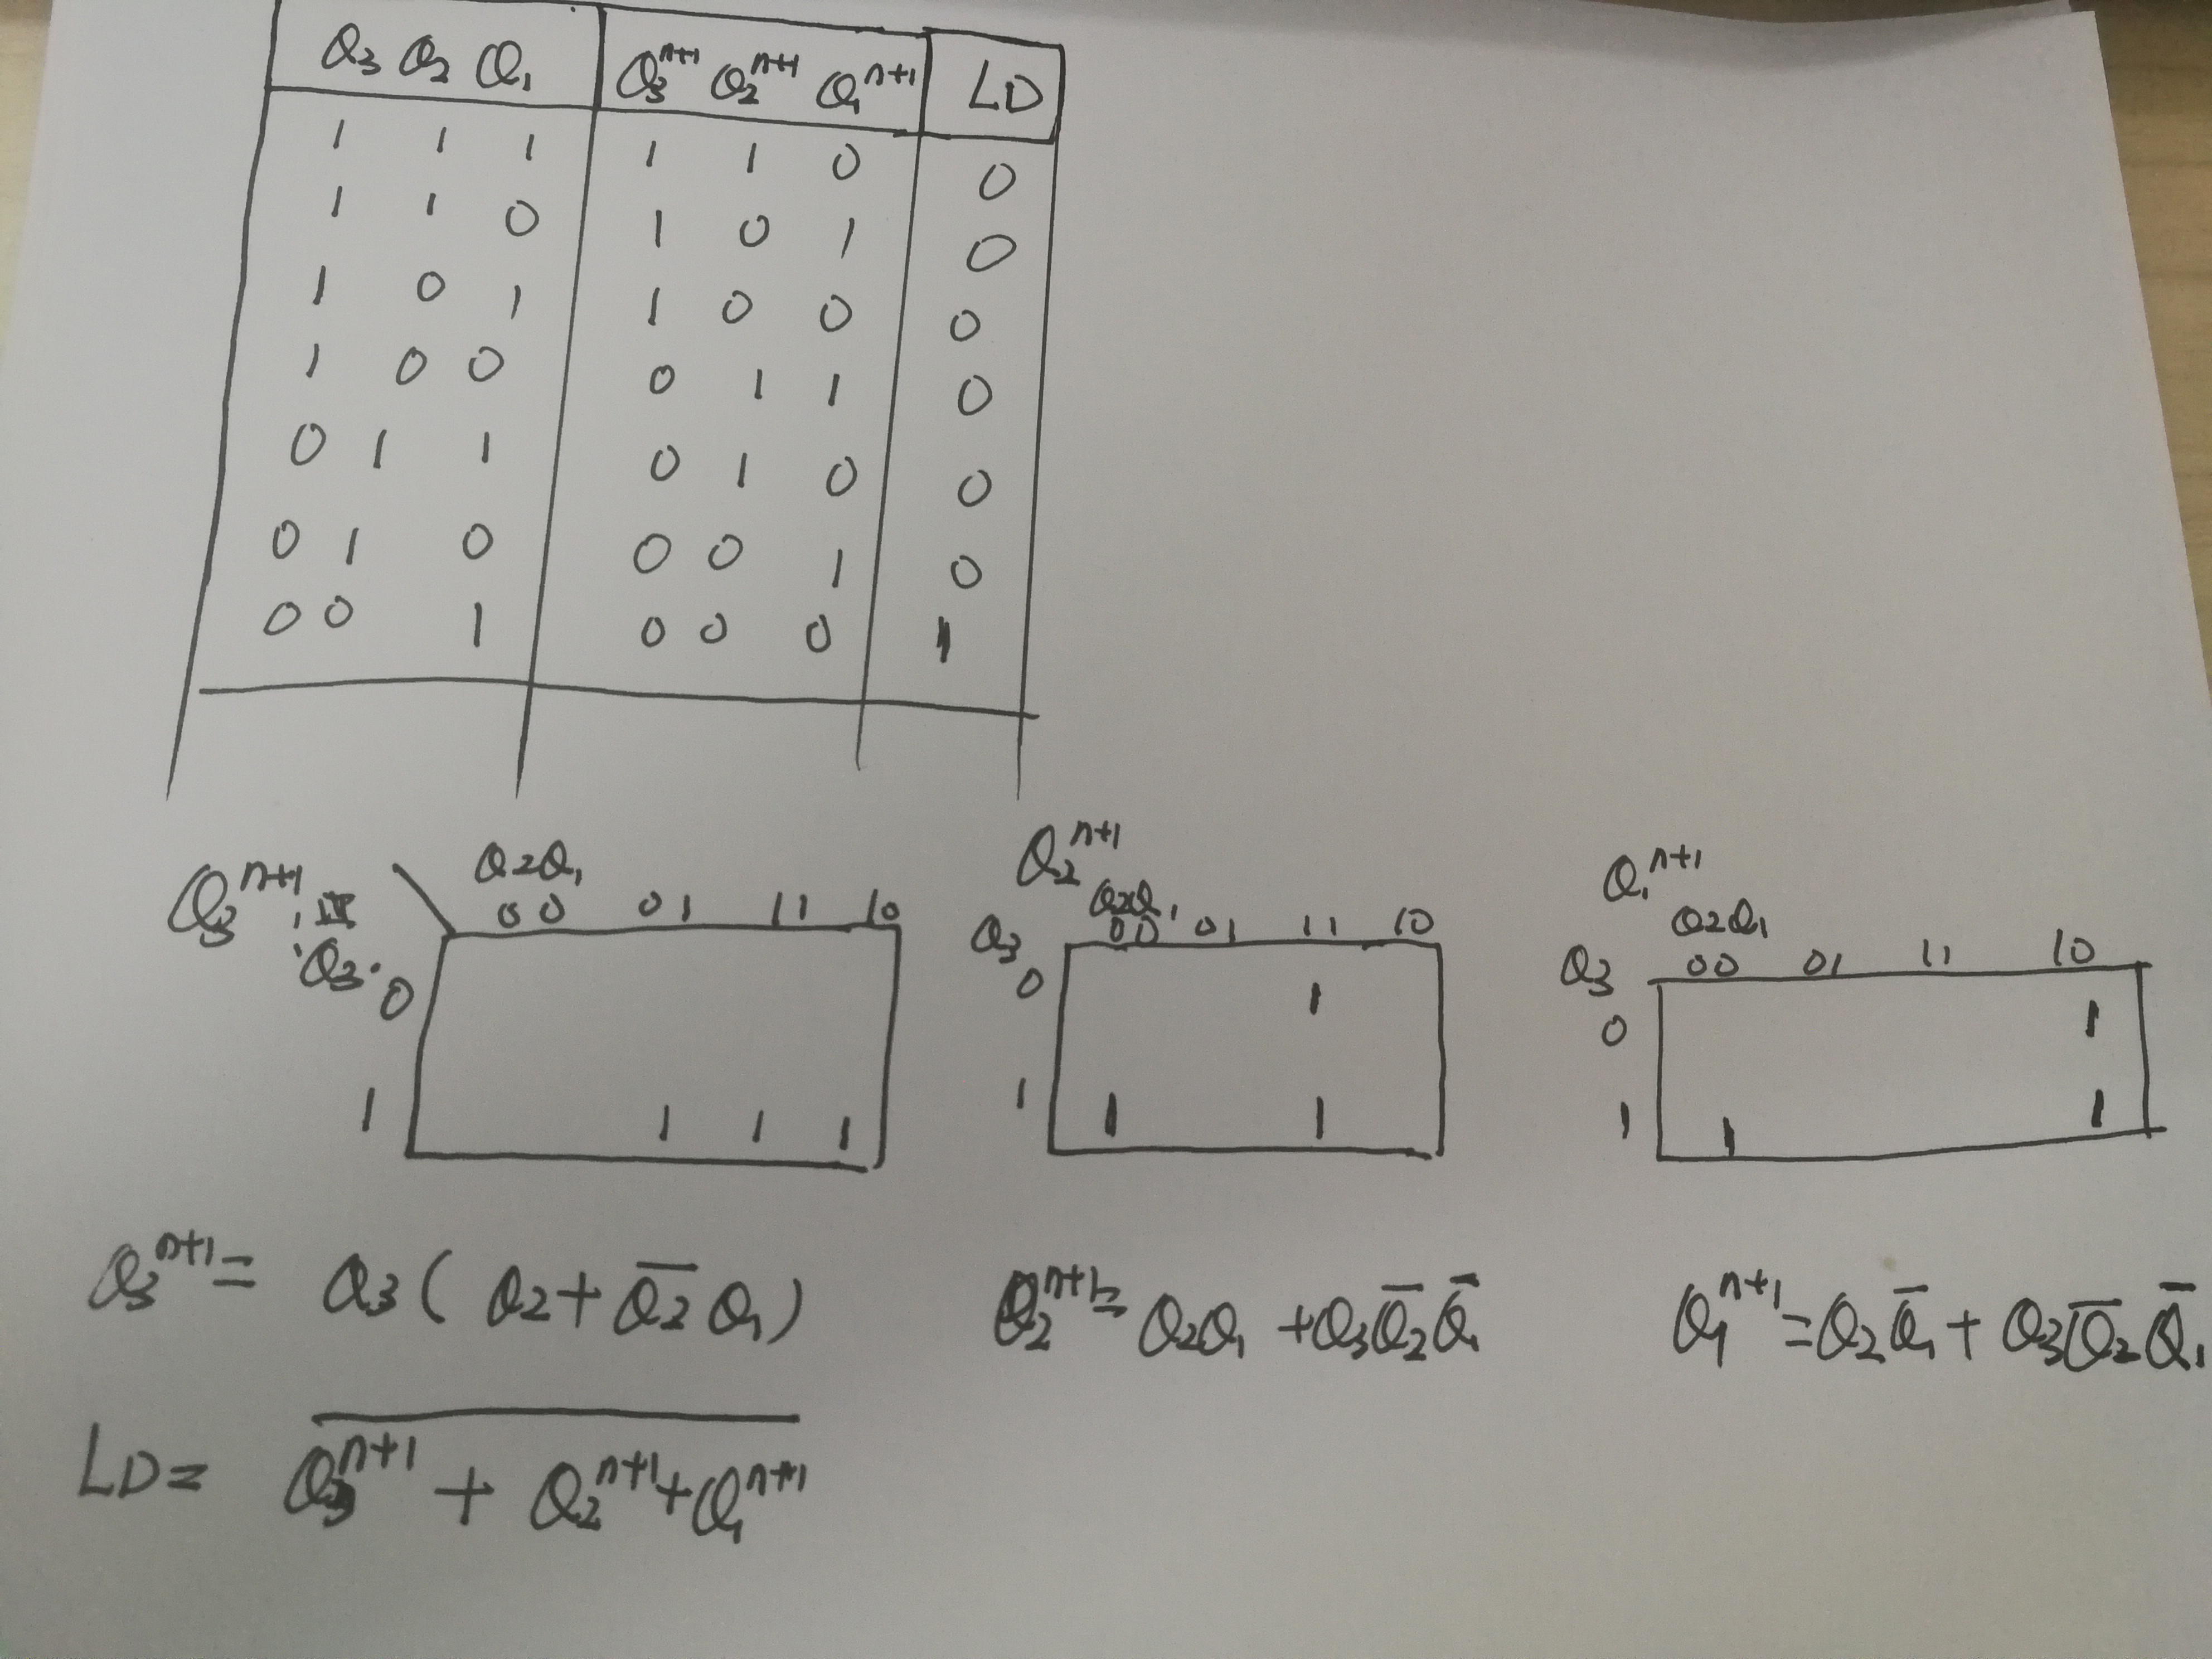 Q3 Q2 Q1 Q3^n+1 Q2^n+1 Q1^n+1 LD
1 1 1 1 1 0 0
1 1 0 1 0 1 0
1 0 1 1 0 0 0
1 0 0 0 1 1 0
0 1 1 0 1 0 0
0 1 0 0 0 1 0
0 0 1 0 0 0 1
Q3^n+1
Q2Q1
00 01 11 10
Q3
0
1 1 1 1
Q2^n+1
Q2Q1
Q3 00 01 11 10
0 1
1 1 1
Q1^n+1
Q2Q1
Q3 00 01 11 10
0 1
1 1 1
Q3^n+1 = Q3 ( Q2 + Q̅2̅ Q1 )
Q2^n+1 = Q2Q1 + Q3Q̅2̅Q̅1̅
Q1^n+1 = Q2Q̅1̅ + Q3Q̅2̅Q̅1̅
LD = \overline{Q3^n+1 + Q2^n+1 + Q1^n+1}